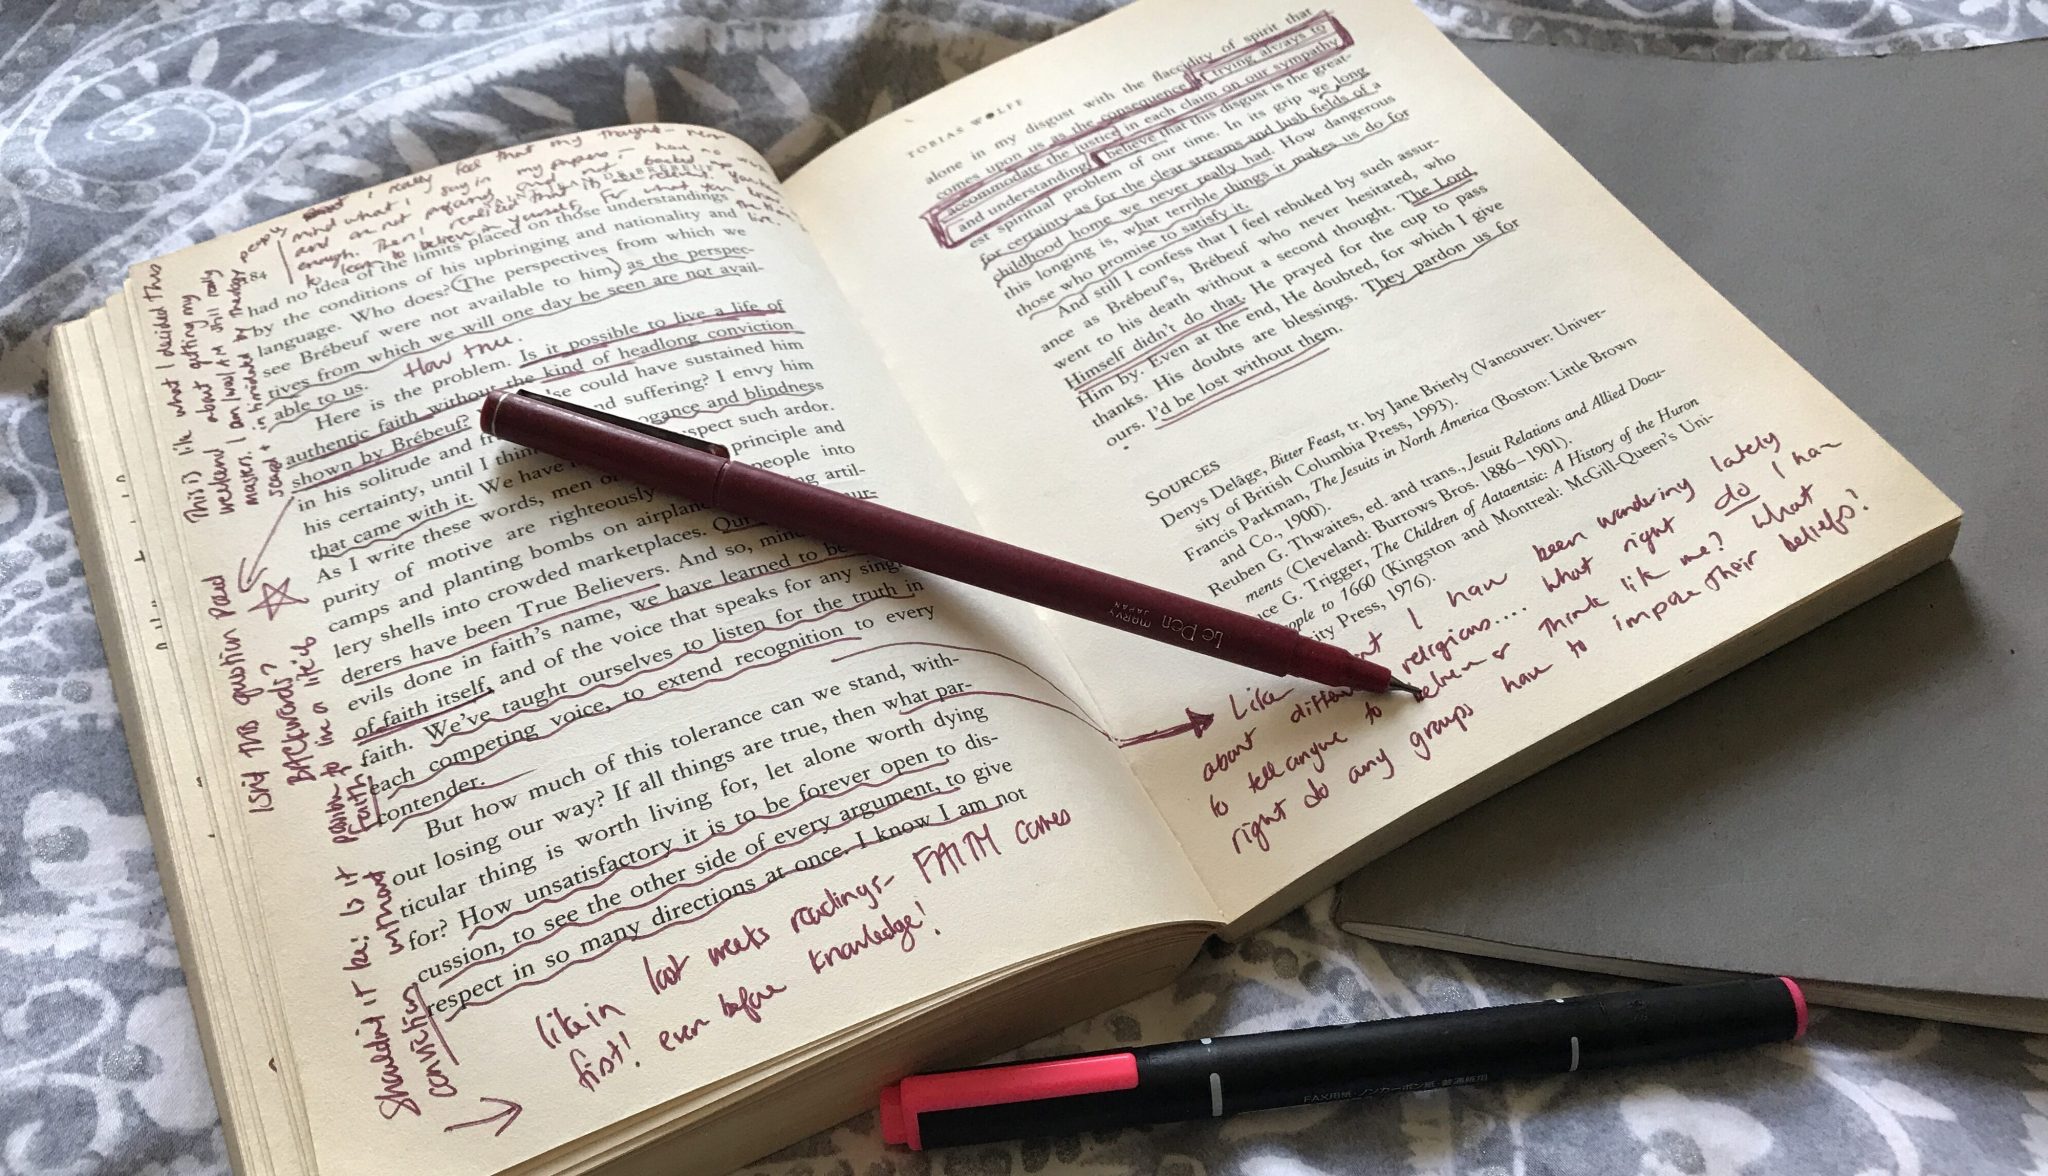 I really feel that my thought - 
mind what I say in my papers - have no
and are not profound and not backed up
enough. Then I realized that it
to learn to believe in yourself, for what you
84
had no idea of the limits placed on those understandings
by the conditions of his upbringing and nationality and
language. Who does? The perspectives from which we
see Brébeuf were not available to him, as the perspec-
tives from which we will one day be seen are not avail-
able to us.
How true.
Here is the problem. Is it possible to live a life of
authentic faith without the kind of headlong conviction
shown by Brébeuf? else could have sustained him
in his solitude and and suffering? I envy him
his certainty, until I ogance and blindness
that came with it. We have spect such ardor.
As I write these words, men principle and
purity of motive are righteously people into
camps and planting bombs on ing artil-
lery shells into crowded marketplaces. Our mur-
derers have been True Believers. And so,
evils done in faith's name, we have learned to
of faith itself, and of the voice that speaks for any
faith. We've taught ourselves to listen for the truth in
each competing voice, to extend recognition to every
contender.
But how much of this tolerance can we stand, with-
out losing our way? If all things are true, then what par-
ticular thing is worth living for, let alone worth dying
for? How unsatisfactory it is to be forever open to dis-
cussion, to see the other side of every argument, to give
respect in so many directions at once. I know I am not
This is like what I decided this
weekend about getting my
masters. I am/was/AM still really
scared + intimidated by theology people
Isn't this question posed
BACKwards?
Shouldn't it be: Is it
possible to live a life of
faith without
conviction
like in last weeks readings - FAITH comes
first! even before knowledge!
TOBIAS WOLFF
alone in my disgust with the flaccidity of spirit that
comes upon us as the consequence of trying always to
accommodate the justice in each claim on our sympathy
and understanding. I believe that this disgust is the great-
est spiritual problem of our time. In its grip we long
for certainty as for the clear streams and lush fields of a
childhood home we never really had. How dangerous
this longing is, what terrible things it makes us do for
those who promise to satisfy it.
And still I confess that I feel rebuked by such assur-
ance as Brébeuf's, Brébeuf who never hesitated, who
went to his death without a second thought. The Lord
Himself didn't do that. He prayed for the cup to pass
Him by. Even at the end, He doubted, for which I give
thanks. His doubts are blessings. They pardon us for
ours. I'd be lost without them.
SOURCES
Denys Delâge, Bitter Feast, tr. by Jane Brierly (Vancouver: Univer-
sity of British Columbia Press, 1993).
Francis Parkman, The Jesuits in North America (Boston: Little Brown
and Co., 1900).
Reuben G. Thwaites, ed. and trans., Jesuit Relations and Allied Docu-
ments (Cleveland: Burrows Bros. 1886–1901).
uce G. Trigger, The Children of Aataentsic: A History of the Huron
eople to 1660 (Kingston and Montreal: McGill-Queen's Uni-
ity Press, 1976).
Like I have been wondering lately
about religions... what right do I have
to tell anyone to believe or think like me? What
right do any groups have to impose their beliefs?
Le Pen MARVY
JAPAN
FAX用紙・ノンカーボン紙・普通紙用